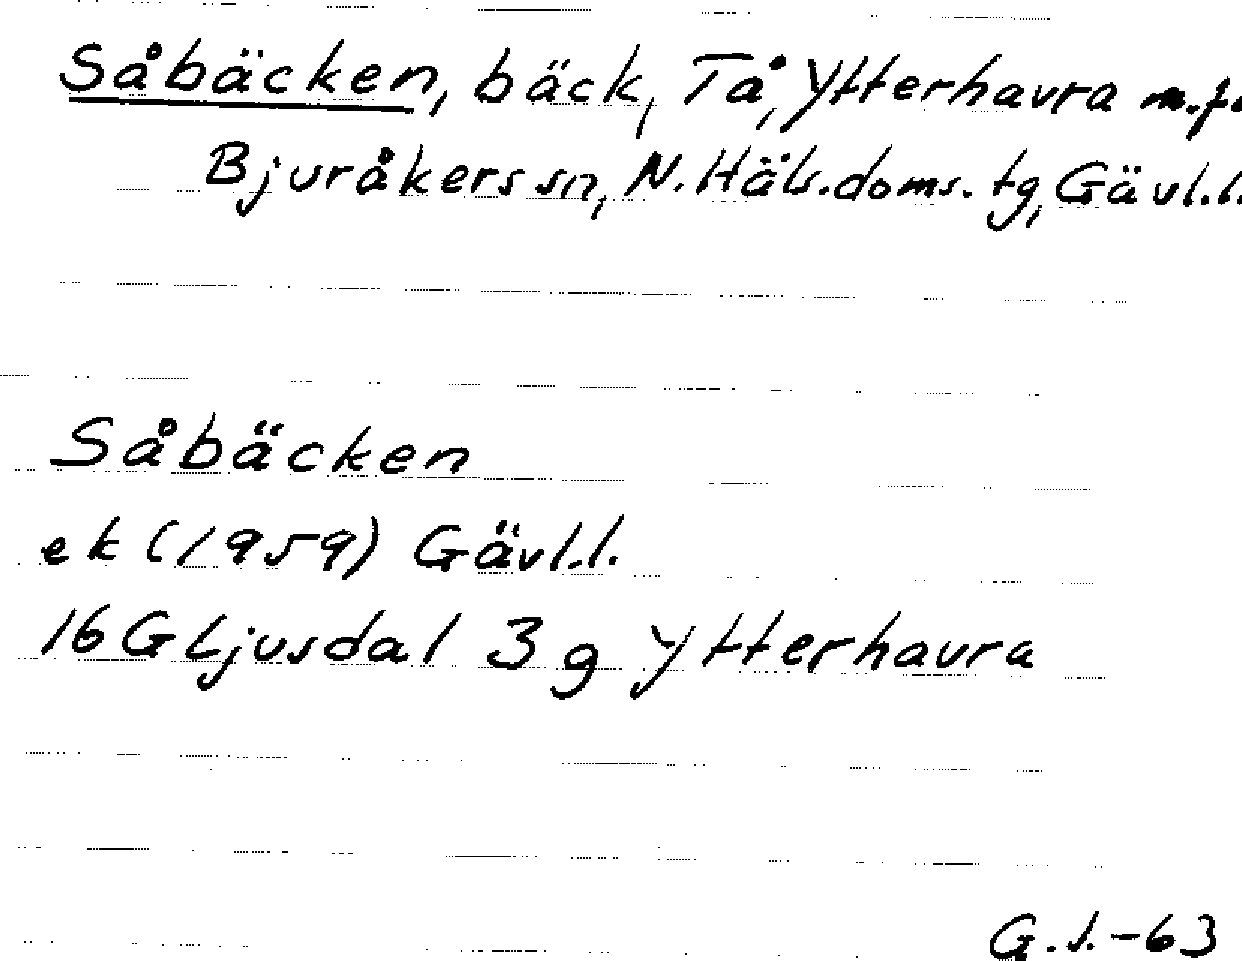 Såbäcken, bäck, Tå, Ytterhavra m.fl.
Bjuråkers sn, N. Häls. doms. tg, Gävl.l.
Såbäcken
ek (1959) Gävl.l.
16G Ljusdal 3g Ytterhavra
G.J.-63